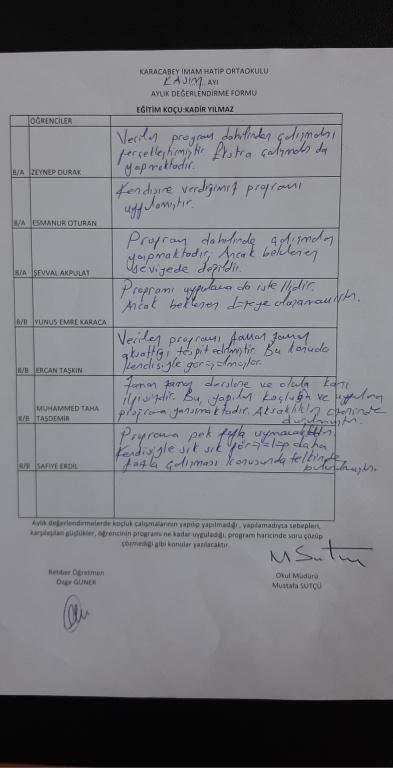 KARACABEY İMAM HATİP ORTAOKULU
KASIM AYI
AYLIK DEĞERLENDİRME FORMU
EĞİTİM KOÇU:KADİR YILMAZ
ÖĞRENCİLER
8/A ZEYNEP DURAK
Verilen program dahilinden çalışmaları
gerçekleştirmiştir. Ekstra çalışmalar da
yapmaktadır.
8/A ESMANUR OTURAN
Kendisine verdiğimiz programı
uygulamıştır.
8/A ŞEVVAL AKPULAT
Program dahilinde çalışmalar
yapmaktadır. Ancak beklenen
seviyede değildir.
8/B YUNUS EMRE KARACA
Programı uygulama da isteklidir.
Ancak beklenen düzeye ulaşamamıştır.
8/B ERCAN TAŞKIN
Verilen programı zaman zaman
aksattığı tespit edilmiştir. Bu konuda
kendisiyle görüşülmüştür.
8/B MUHAMMED TAHA
TAŞDEMİR
Zaman zaman derslere ve okula karşı
ilgisizdir. Bu, yapılan koçluğa ve uygulanan
programa yansımaktadır. Aksaklıklar üzerinde
durulmuştur.
8/B SAFİYE ERDİL
Programa pek fazla uymamaktadır.
Kendisiyle sık sık görüşülüp daha
fazla çalışması konusunda telkinde
bulunulmuştur.
Aylık değerlendirmelerde koçluk çalışmalarının yapılıp yapılmadığı , yapılamadıysa sebepleri,
karşılaşılan güçlükler, öğrencinin programı ne kadar uyguladığı, program haricinde soru çözüp
çözmediği gibi konular yazılacaktır.
Rehber Öğretmen
Özge GÜNER
Okul Müdürü
Mustafa SÜTÇÜ